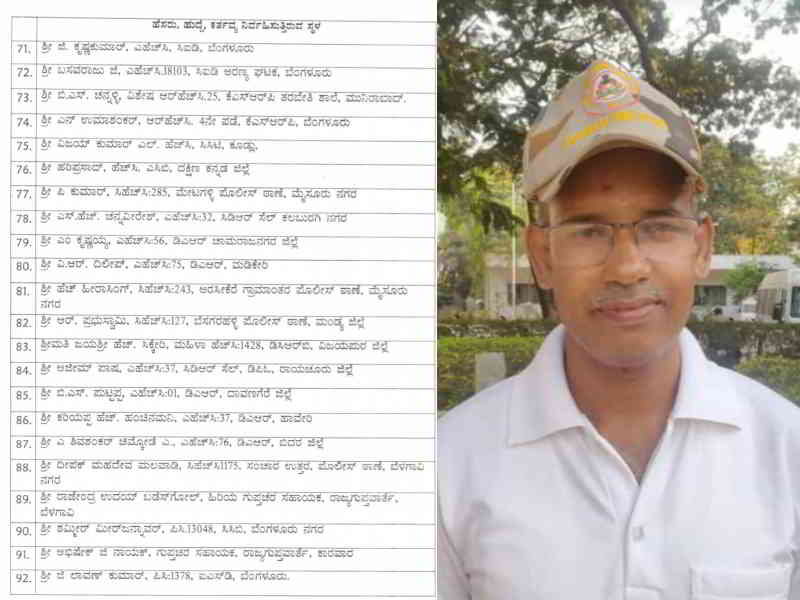 ಹೆಸರು, ಹುದ್ದೆ, ಕರ್ತವ್ಯ ನಿರ್ವಹಿಸುತ್ತಿರುವ ಸ್ಥಳ
71. ಶ್ರೀ ಜಿ. ಕೃಷ್ಣಕುಮಾರ್, ಎಹೆಚ್‌ಸಿ, ಸಿಐಡಿ, ಬೆಂಗಳೂರು
72. ಶ್ರೀ ಬಸವರಾಜು ಜಿ, ಎಹೆಚ್‌ಸಿ.18103, ಸಿಐಡಿ ಅರಣ್ಯ ಘಟಕ, ಬೆಂಗಳೂರು
73. ಶ್ರೀ ಬಿ.ಎಸ್. ಚನ್ನಳ್ಳಿ, ವಿಶೇಷ ಆರ್‌ಹೆಚ್‌ಸಿ.25, ಕೆಎಸ್‌ಆರ್‌ಪಿ ತರಬೇತಿ ಶಾಲೆ, ಮುನಿರಾಬಾದ್.
74. ಶ್ರೀ ಎನ್ ಉಮಾಶಂಕರ್, ಆರ್‌ಹೆಚ್‌ಸಿ. 4ನೇ ಪಡೆ, ಕೆಎಸ್‌ಆರ್‌ಪಿ, ಬೆಂಗಳೂರು
75. ಶ್ರೀ ವಿಜಯ್ ಕುಮಾರ್ ಎಲ್. ಹೆಚ್‌ಸಿ, ಸಿಸಿಟಿ, ಕೂಡ್ಲು.
76. ಶ್ರೀ ಹರಿಪ್ರಸಾದ್, ಹೆಚ್‌ಸಿ. ಎಸಿಬಿ, ದಕ್ಷಿಣ ಕನ್ನಡ ಜಿಲ್ಲೆ
77. ಶ್ರೀ ಪಿ ಕುಮಾರ್, ಸಿಹೆಚ್‌ಸಿ:285, ಮೇಟಗಳ್ಳಿ ಪೊಲೀಸ್ ಠಾಣೆ, ಮೈಸೂರು ನಗರ
78. ಶ್ರೀ ಎಸ್.ಹೆಚ್. ಚನ್ನವೀರೇಶ್, ಎಹೆಚ್‌ಸಿ:32, ಸಿಡಿಆರ್ ಸೆಲ್ ಕಲಬುರಗಿ ನಗರ
79. ಶ್ರೀ ಎಂ ಕೃಷ್ಣಯ್ಯ, ಎಹೆಚ್‌ಸಿ:56, ಡಿಎಆರ್ ಚಾಮರಾಜನಗರ ಜಿಲ್ಲೆ
80. ಶ್ರೀ ವಿ.ಆರ್. ದಿಲೀಪ್, ಎಹೆಚ್‌ಸಿ:75, ಡಿಎಆರ್, ಮಡಿಕೇರಿ
81. ಶ್ರೀ ಹೆಚ್ ಹೀರಾಸಿಂಗ್, ಸಿಹೆಚ್‌ಸಿ:243, ಅರಸೀಕೆರೆ ಗ್ರಾಮಾಂತರ ಪೊಲೀಸ್ ಠಾಣೆ, ಮೈಸೂರು
ನಗರ
82. ಶ್ರೀ ಆರ್. ಪ್ರಭುಸ್ವಾಮಿ, ಸಿಹೆಚ್‌ಸಿ:127, ಬೆಸಗರಹಳ್ಳಿ ಪೊಲೀಸ್ ಠಾಣೆ, ಮಂಡ್ಯ ಜಿಲ್ಲೆ
83. ಶ್ರೀಮತಿ ಜಯಶ್ರೀ ಹೆಚ್. ಸಿಕ್ಕೇರಿ, ಮಹಿಳಾ ಹೆಚ್‌ಸಿ:1428, ಡಿಸಿಆರ್‌ಬಿ, ವಿಜಯಪುರ ಜಿಲ್ಲೆ
84. ಶ್ರೀ ಅಜೀಮ್ ಪಾಷ, ಎಹೆಚ್‌ಸಿ:37, ಸಿಡಿಆರ್ ಸೆಲ್, ಡಿಪಿಓ, ರಾಯಚೂರು ಜಿಲ್ಲೆ
85. ಶ್ರೀ ಬಿ.ಎಸ್. ಪುಟ್ಟಪ್ಪ, ಎಹೆಚ್‌ಸಿ:01, ಡಿಎಆರ್, ದಾವಣಗೆರೆ ಜಿಲ್ಲೆ
86. ಶ್ರೀ ಕರಿಯಪ್ಪ ಹೆಚ್. ಹಂಚಿನಮನಿ, ಎಹೆಚ್‌ಸಿ:37, ಡಿಎಆರ್, ಹಾವೇರಿ
87. ಶ್ರೀ ಎ ಶಿವಶಂಕರ್ ಚಿಮ್ಕೋಡೆ ಎ., ಎಹೆಚ್‌ಸಿ:76, ಡಿಎಆರ್, ಬಿದರ ಜಿಲ್ಲೆ
88. ಶ್ರೀ ದೀಪಕ್ ಮಹದೇವ ಮಲವಾಡಿ, ಸಿಹೆಚ್‌ಸಿ:1175, ಸಂಚಾರ ಉತ್ತರ, ಪೊಲೀಸ್ ಠಾಣೆ, ಬೆಳಗಾವಿ
ನಗರ
89. ಶ್ರೀ ರಾಜೇಂದ್ರ ಉದಯ್ ಬಡೆಸ್‌ಗೋಲ್, ಹಿರಿಯ ಗುಪ್ತಚರ ಸಹಾಯಕ, ರಾಜ್ಯಗುಪ್ತವಾರ್ತೆ,
ಬೆಳಗಾವಿ
90. ಶ್ರೀ ಶಮ್ಮೀರ್ ಮೀರ್‌ಜನ್ನಾವರ್, ಪಿಸಿ.13048, ಸಿಸಿಬಿ, ಬೆಂಗಳೂರು ನಗರ
91. ಶ್ರೀ ಅಭಿಷೇಕ್ ಜಿ ನಾಯಕ್, ಗುಪ್ತಚರ ಸಹಾಯಕ, ರಾಜ್ಯಗುಪ್ತವಾರ್ತೆ, ಕಾರವಾರ
92. ಶ್ರೀ ಜಿ ಲಾವಣ್ ಕುಮಾರ್, ಪಿಸಿ:1378, ಐಎಸ್‌ಡಿ, ಬೆಂಗಳೂರು.